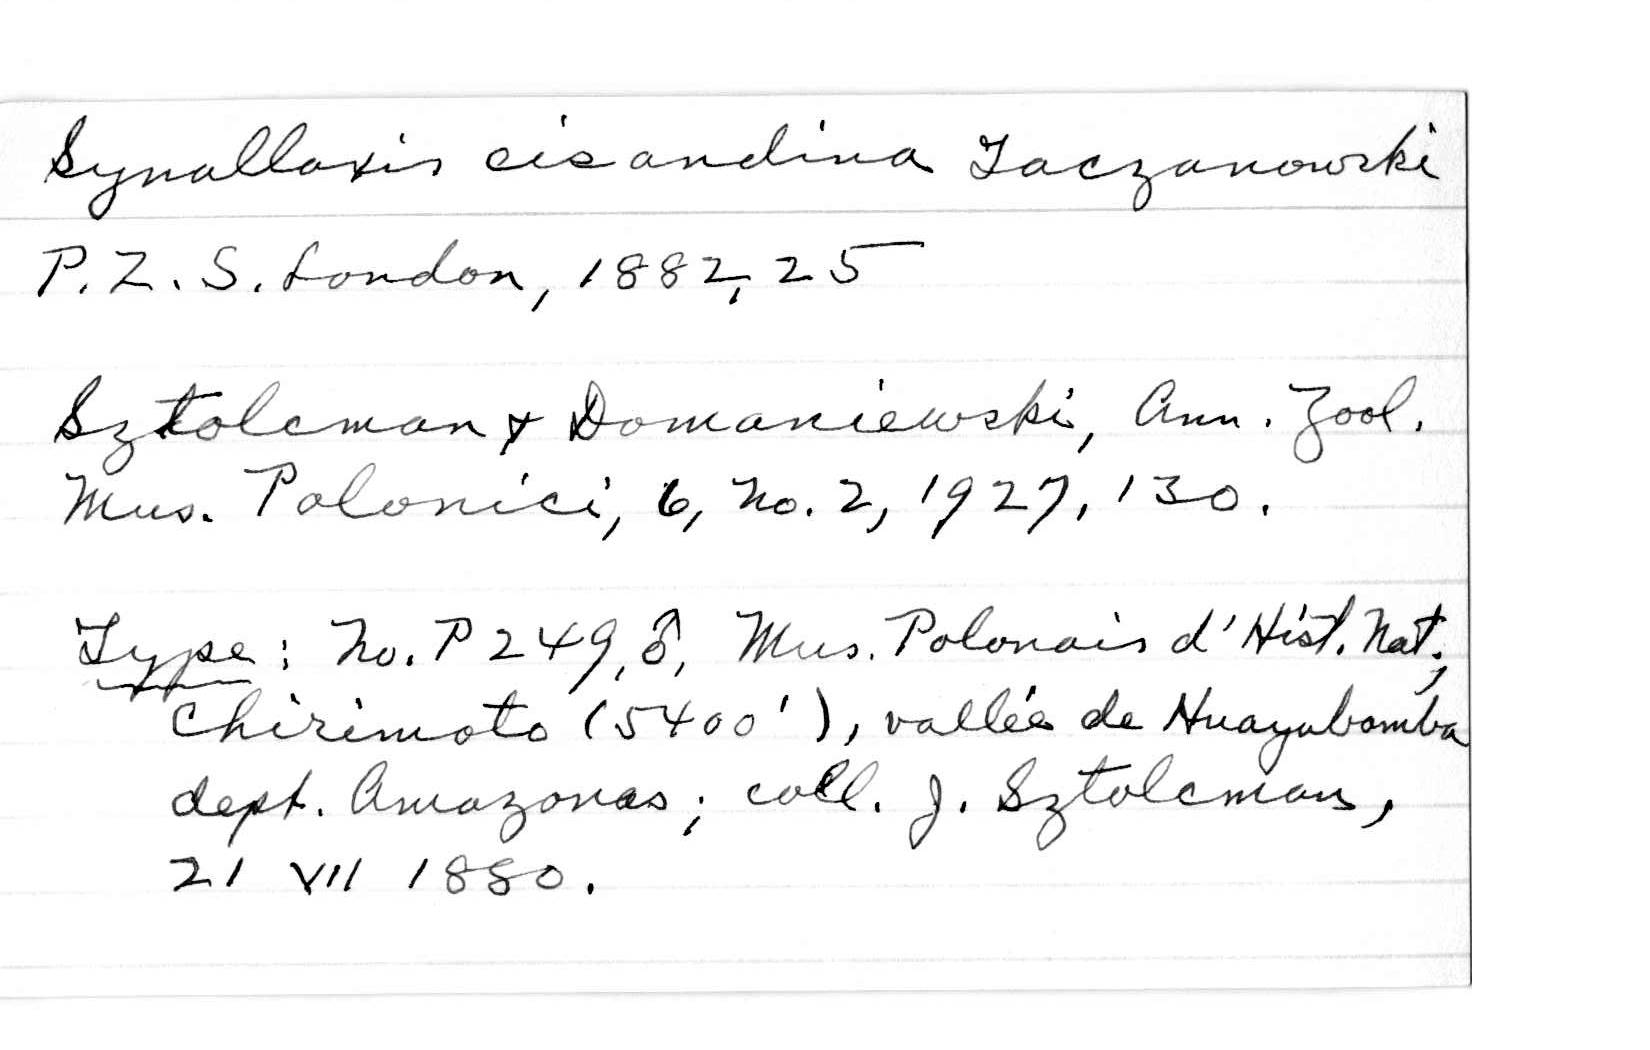 Synallaxis cisandina Taczanowski
P. Z. S. London, 1882, 25
Sztolcman & Domaniewski, Ann. Zool.
Mus. Polonici, 6, No. 2, 1927, 130.
Type: No. P 249, ♂, Mus. Polonais d'Hist. Nat.;
Chirimoto (5400'), vallée de Huayabamba
dept. Amazonas; coll. J. Sztolcman,
21 VII 1880.